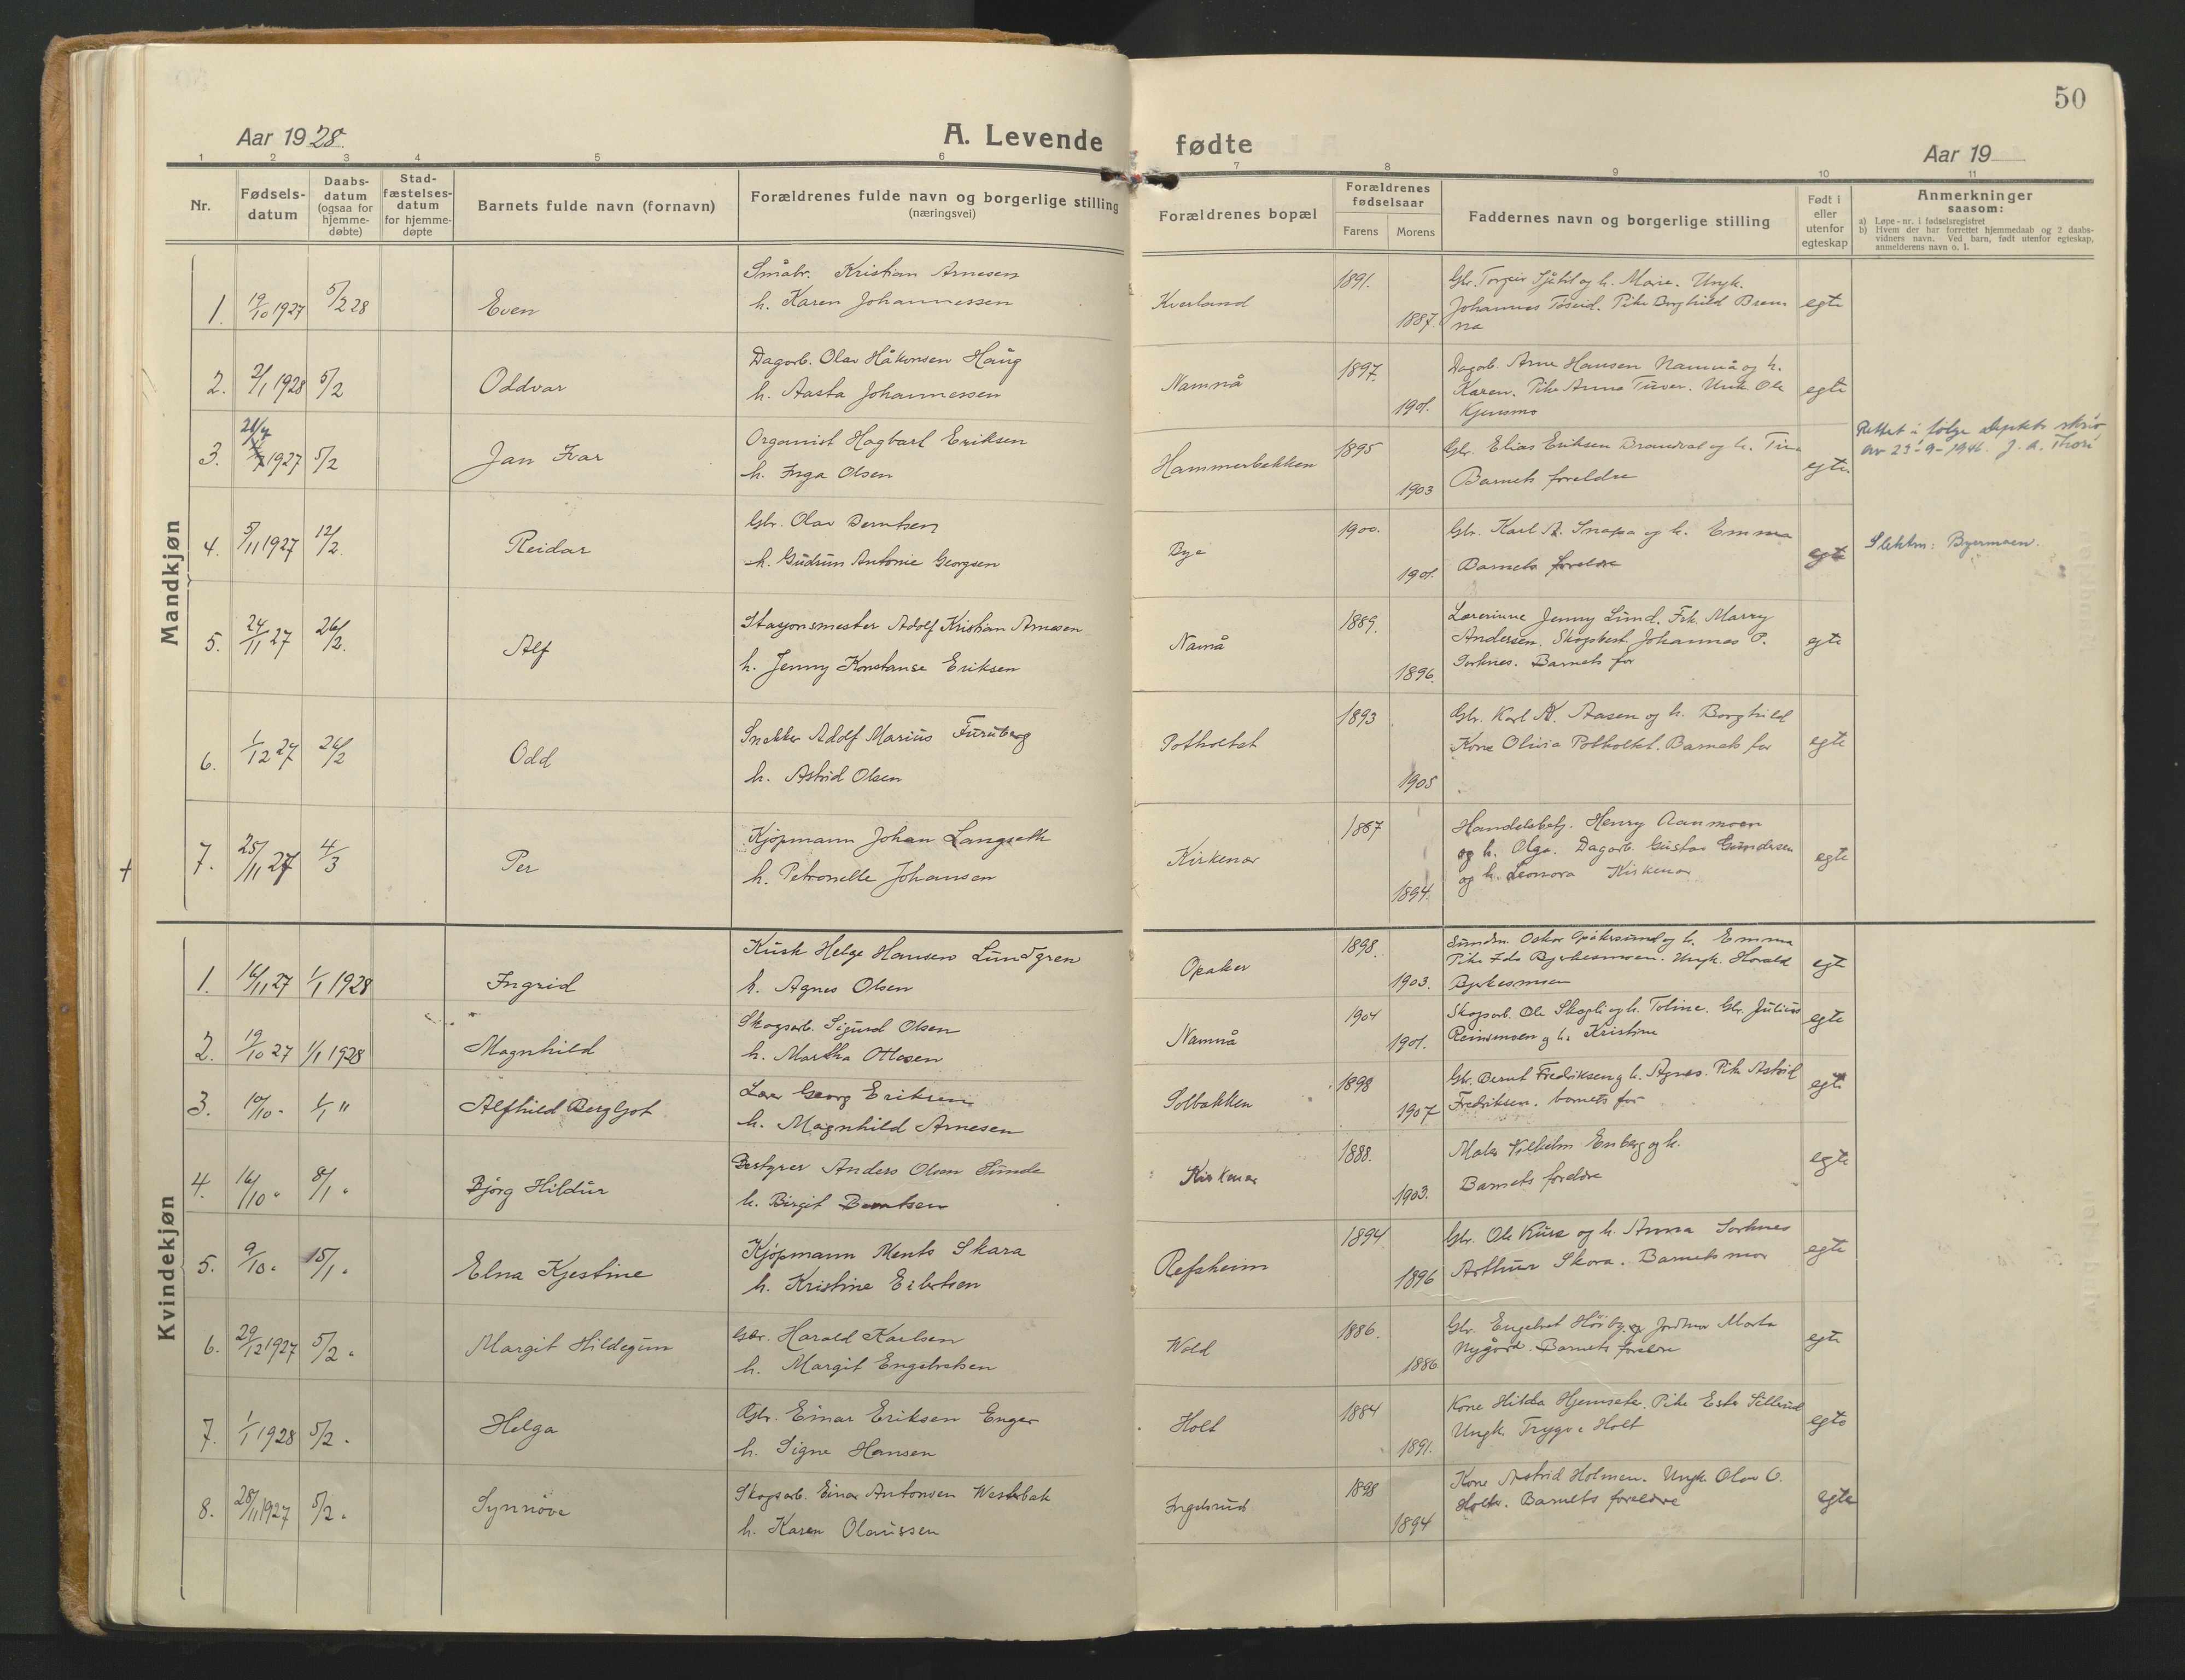 50
Aar 1928.
A. Levende fødte
Aar 19
1 2 3 4 5 6 7 8 9 10 11
Nr.
Fødsels-
datum
Daabs-
datum
(ogsaa for
hjemme-
døbte)
Stad-
fæstelses-
datum
for hjemme-
døpte
Barnets fulde navn (fornavn)
Forældrenes fulde navn og borgerlige stilling
(næringsvei)
Forældrenes bopæl
Forældrenes
fødselsaar
Farens Morens
Faddernes navn og borgerlige stilling
Født i
eller
utenfor
egteskap
Anmerkninger
saasom:
a) Løpe-nr. i fødselsregistret
b) Hvem der har forrettet hjemmedaab og 2 daabs-
vidners navn. Ved barn, født utenfor egteskap,
anmelderens navn o. l.
Mandkjøn
1. 19/10 1927 5/2 28 Even
Småbr. Kristian Arnesen
h. Karen Johannessen
Kverland 1891. 1887.
Gbr. Torgeir Sjåtil og h. Marie. Ungk.
Johannes Töseid. Pike Borghild Brenn
na
egte
2. 2/1 1928 5/2 Oddvar
Dagarb. Olav Håkonsen Haug
h. Aasta Johannessen
Namnå 1897. 1901.
Dagarb. Arne Hansen Namnå og h.
Karen. Pike Anna Tuver. Unk Ole
Kjensmo
egte
3. 21/4 1927 5/2 Jan Ivar
Organist Hagbart Eriksen
h. Inga Olsen
Hammerbekken 1895 1903
Gbr. Elias Eriksen Brandval og h. Tina
Barnets foreldre
egte
Rettet i følge deptets skriv
av 23-9-1946. J. A. Thori
4. 5/11 1927 12/2. Reidar
Gbr. Olav Berntsen
h. Gudrun Antonie Georgsen
Bye 1900. 1901.
Gbr. Karl A. Snapa og h. Emma
Barnets foreldre
egte
Slektsn: Byermoen.
5. 24/11 27 26/2. Alf
Stasjonsmester Adolf Kristian Arnesen
h. Jenny Konstanse Eriksen
Namnå 1889. 1896.
Lærerinne Jenny Lund. Frk. Marry
Andersen. Skogbest. Johannes P.
Sorknes. Barnets far
egte
6. 1/12 27 26/2 Odd
Snekker Adolf Marius Furuberg
h. Astrid Olsen
Potholtet 1893 1905
Gbr. Karl K. Aasen og h. Borghild
Kone Olivia Potholtet. Barnets far
egte
+
7. 25/11 27 4/3 Per
Kjøpmann Johan Langseth
h. Petronelle Johansen
Kirkenær 1887 1894
Handelsbetj. Henry Aanmoen
og h. Olga. Dagarb. Gustav Gundersen
og h. Leonora Kirkenær
egte
Kvindekjøn
1. 16/11 27 1/1 1928 Ingrid
Kusk Helge Hansen Lundgren
h. Agnes Olsen
Opaker 1898. 1903.
Sundm. Oskar Opakersund og h. Emma
Pike Ida Bjerkesmoen. Ungk. Harald
Bjerkesmoen
egt
2. 19/10 27 1/1 1928 Magnhild
Skogsarb. Sigurd Olsen
h. Martha Ottosen
Namnå 1904 1901.
Skogsarb. Ole Skasli og h. Toline. Gbr. Julius
Reinsmoen og h. Kristine
egte
3. 10/10 - 1/1 " Alfhild Bergljot
Lærer Georg Eriksen
h. Magnhild Arnesen
Solbakken 1898 1907
Gbr. Bernt Fredriksen og h. Agnes. Pike Astrid
Fredriksen. barnets far
egte
4. 16/10 " 8/1 " Bjørg Hildur
Bestyrer Anders Olsen Sunde
h. Birgit Berntsen
Kirkenær 1888. 1903.
Maler Vilhelm Enberg og h.
Barnets foreldre
egte
5. 9/10 " 15/1 " Elna Kjestine
Kjøpmann Ments Skara
h. Kristine Eilertsen
Refsheim 1894 1896
Gbr. Ole Ruse og h. Anna Sorknes
Arthur Skara. Barnets mor
egte
6. 29/12 1927 5/2 " Margit Hildegun
Gbr. Harald Karlsen
h. Margit Engebretsen
Wold 1886. 1886
Gbr. Engebret Höiby og Jordmor Marta
Nygård. Barnets foreldre
egte
7. 1/1 1928 5/2 - Helga
Gbr. Einar Eriksen Enger
h. Signe Hansen
Holt 1884 1891.
Kone Hilda Hjemseter. Pike Ester Sillerud
Ungk. Trygve Holt
egte
8. 28/11 1927 5/2 " Synnöve
Skogsarb. Einar Antonsen Westerbak
h. Karen Olaussen
Ingelsrud 1898 1894
Kone Astrid Holmen. Ungk. Olav O.
Holter. Barnets foreldre
egte